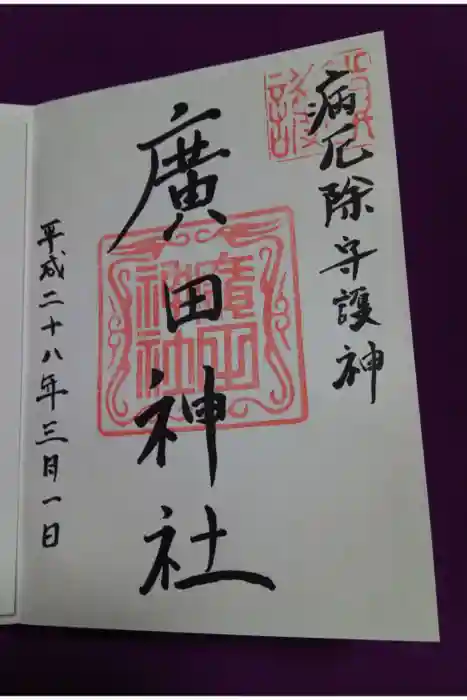 病厄除守護神
廣田神社
平成二十八年三月一日
廣田
神社